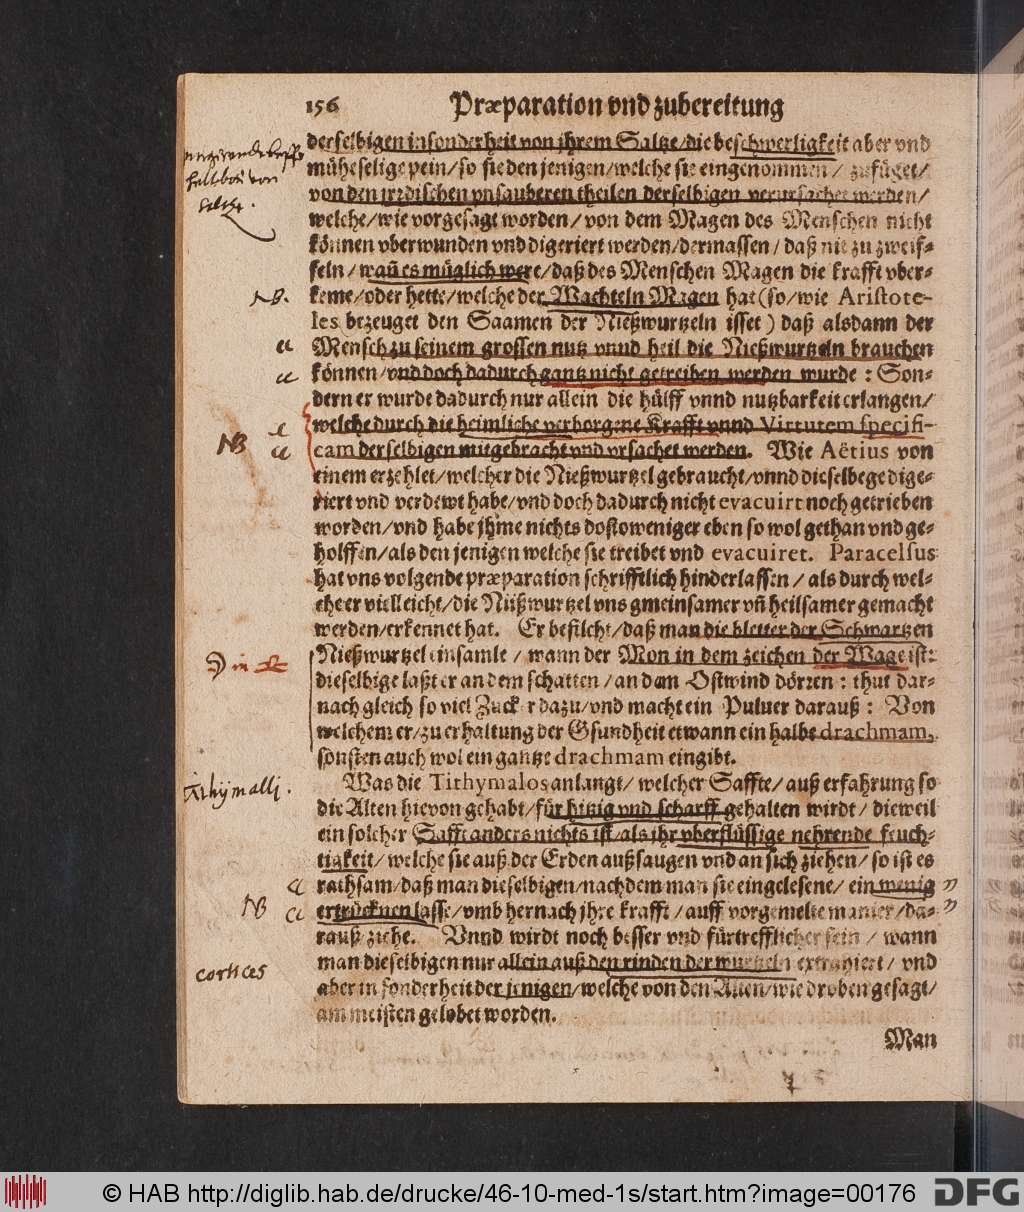 156 Præparation vnd zubereitung
derselbigen insonderheit von jhrem Saltze/die beschwerligkeit aber vnd
müheselige pein/so sie den jenigen/welche sie eingenommen/ zufüget/
von den jrrdischen vnsauberen theilen derselbigen verursachet werden/
welche/wie vorgesagt worden/von dem Magen des Menschen nicht
können vberwunden vnd digeriert werden/dermassen/daß nie zu zweif-
feln/wañ es müglich were/daß des Menschen Magen die krafft vber-
NB.
keme/oder hette/welche der Wachteln Magen hat (so/wie Aristote-
les bezeuget den Saamen der Nießwurtzeln isset) daß alsdann der
Mensch zu seinem grossen nutz vnnd heil die Nießwurtzeln brauchen
können/vnd doch dadurch gantz nicht getrieben werden wurde: Son-
dern er wurde dadurch nur allein die hülff vnnd nutzbarkeit erlangen/
welche durch die heimliche verborgene Krafft vnnd Virtutem specifi-
NB
cam derselbigen mitgebracht vnd vrsachet werden. Wie Aëtius von
einem erzehlet/welcher die Nießwurtzel gebraucht/vnnd dieselbege dige-
riert vnd verdewt habe/vnd doch dadurch nicht evacuirt noch getrieben
worden/vnd habe jhme nichts dostoweniger eben so wol gethan vnd ge-
holffen/als den jenigen welche sie treibet vnd evacuiret. Paracelsus
hat vns volgende præparation schrifftlich hinderlassen/als durch wel-
che er vielleicht/die Nießwurtzel vns gmeinsamer vñ heilsamer gemacht
werden/erkennet hat. Er befilcht/daß man die bletter der Schwartzen
☽ in ♎
Nießwurtzel einsamle/wann der Mon in dem zeichen der Wage ist:
dieselbige laßt er an dem schatten/an dem Ostwind dörren: thut dar-
nach gleich so viel Zucker dazu/vnd macht ein Puluer darauß: Von
welchem er/zu erhaltung der Gsundheit etwann ein halbe drachmam,
sonsten auch wol ein gantze drachmam eingibt.
Tithymalli.
Was die Tithymalos anlangt/welcher Saffte/auß erfahrung so
die Alten hievon gehabt/für hitzig vnd scharff gehalten wirdt/dieweil
ein solcher Safft anders nichts ist/als jhr vberflüssige nehrende feuch-
tigkeit/welche sie auß der Erden außsaugen vnd an sich ziehen/so ist es
rathsam/daß man dieselbigen/nachdem man sie eingelesene/ein wenig
NB
ertrücknen lasse/vmb hernach jhre krafft/auff vorgemelte manier/da-
rauß ziehe. Vnnd wirdt noch besser vnd fürtrefflicher sein/wann
man dieselbigen nur allein auß den rinden der wurtzeln extrahiert/vnd
cortices
aber in sonderheit der jenigen/welche von den Alten/wie droben gesagt/
am meisten gelobet worden.
Man
© HAB http://diglib.hab.de/drucke/46-10-med-1s/start.htm?image=00176 DFG